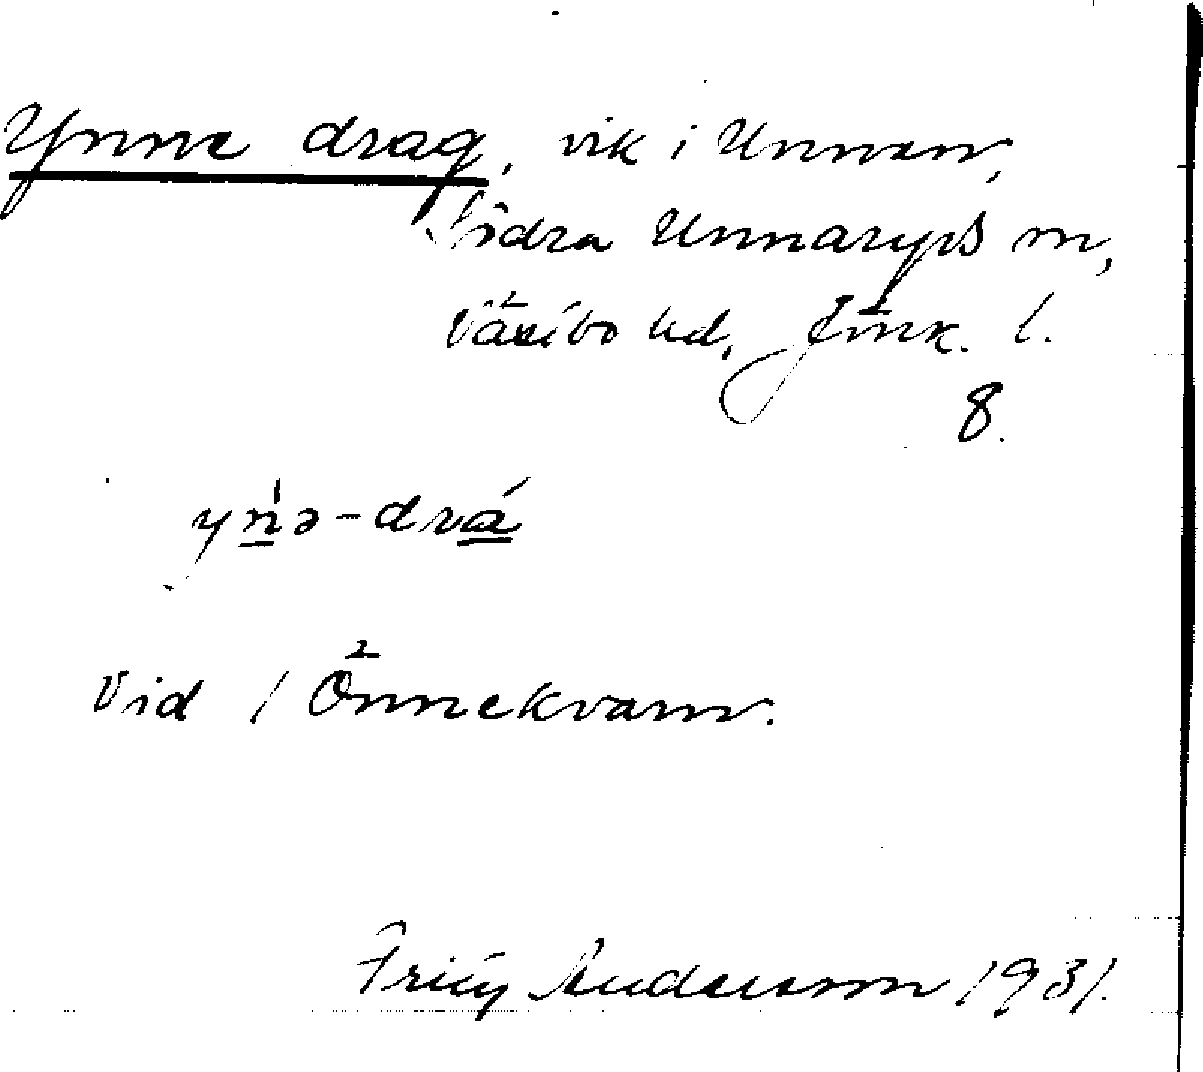 Ynne drag, vik i Unnen,
Södra Unnaryds sn,
Västbo hd, Jönk. l.
8.
yn̲ə-drá̲
Vid / Önnekvarn.
Andersson 1931.